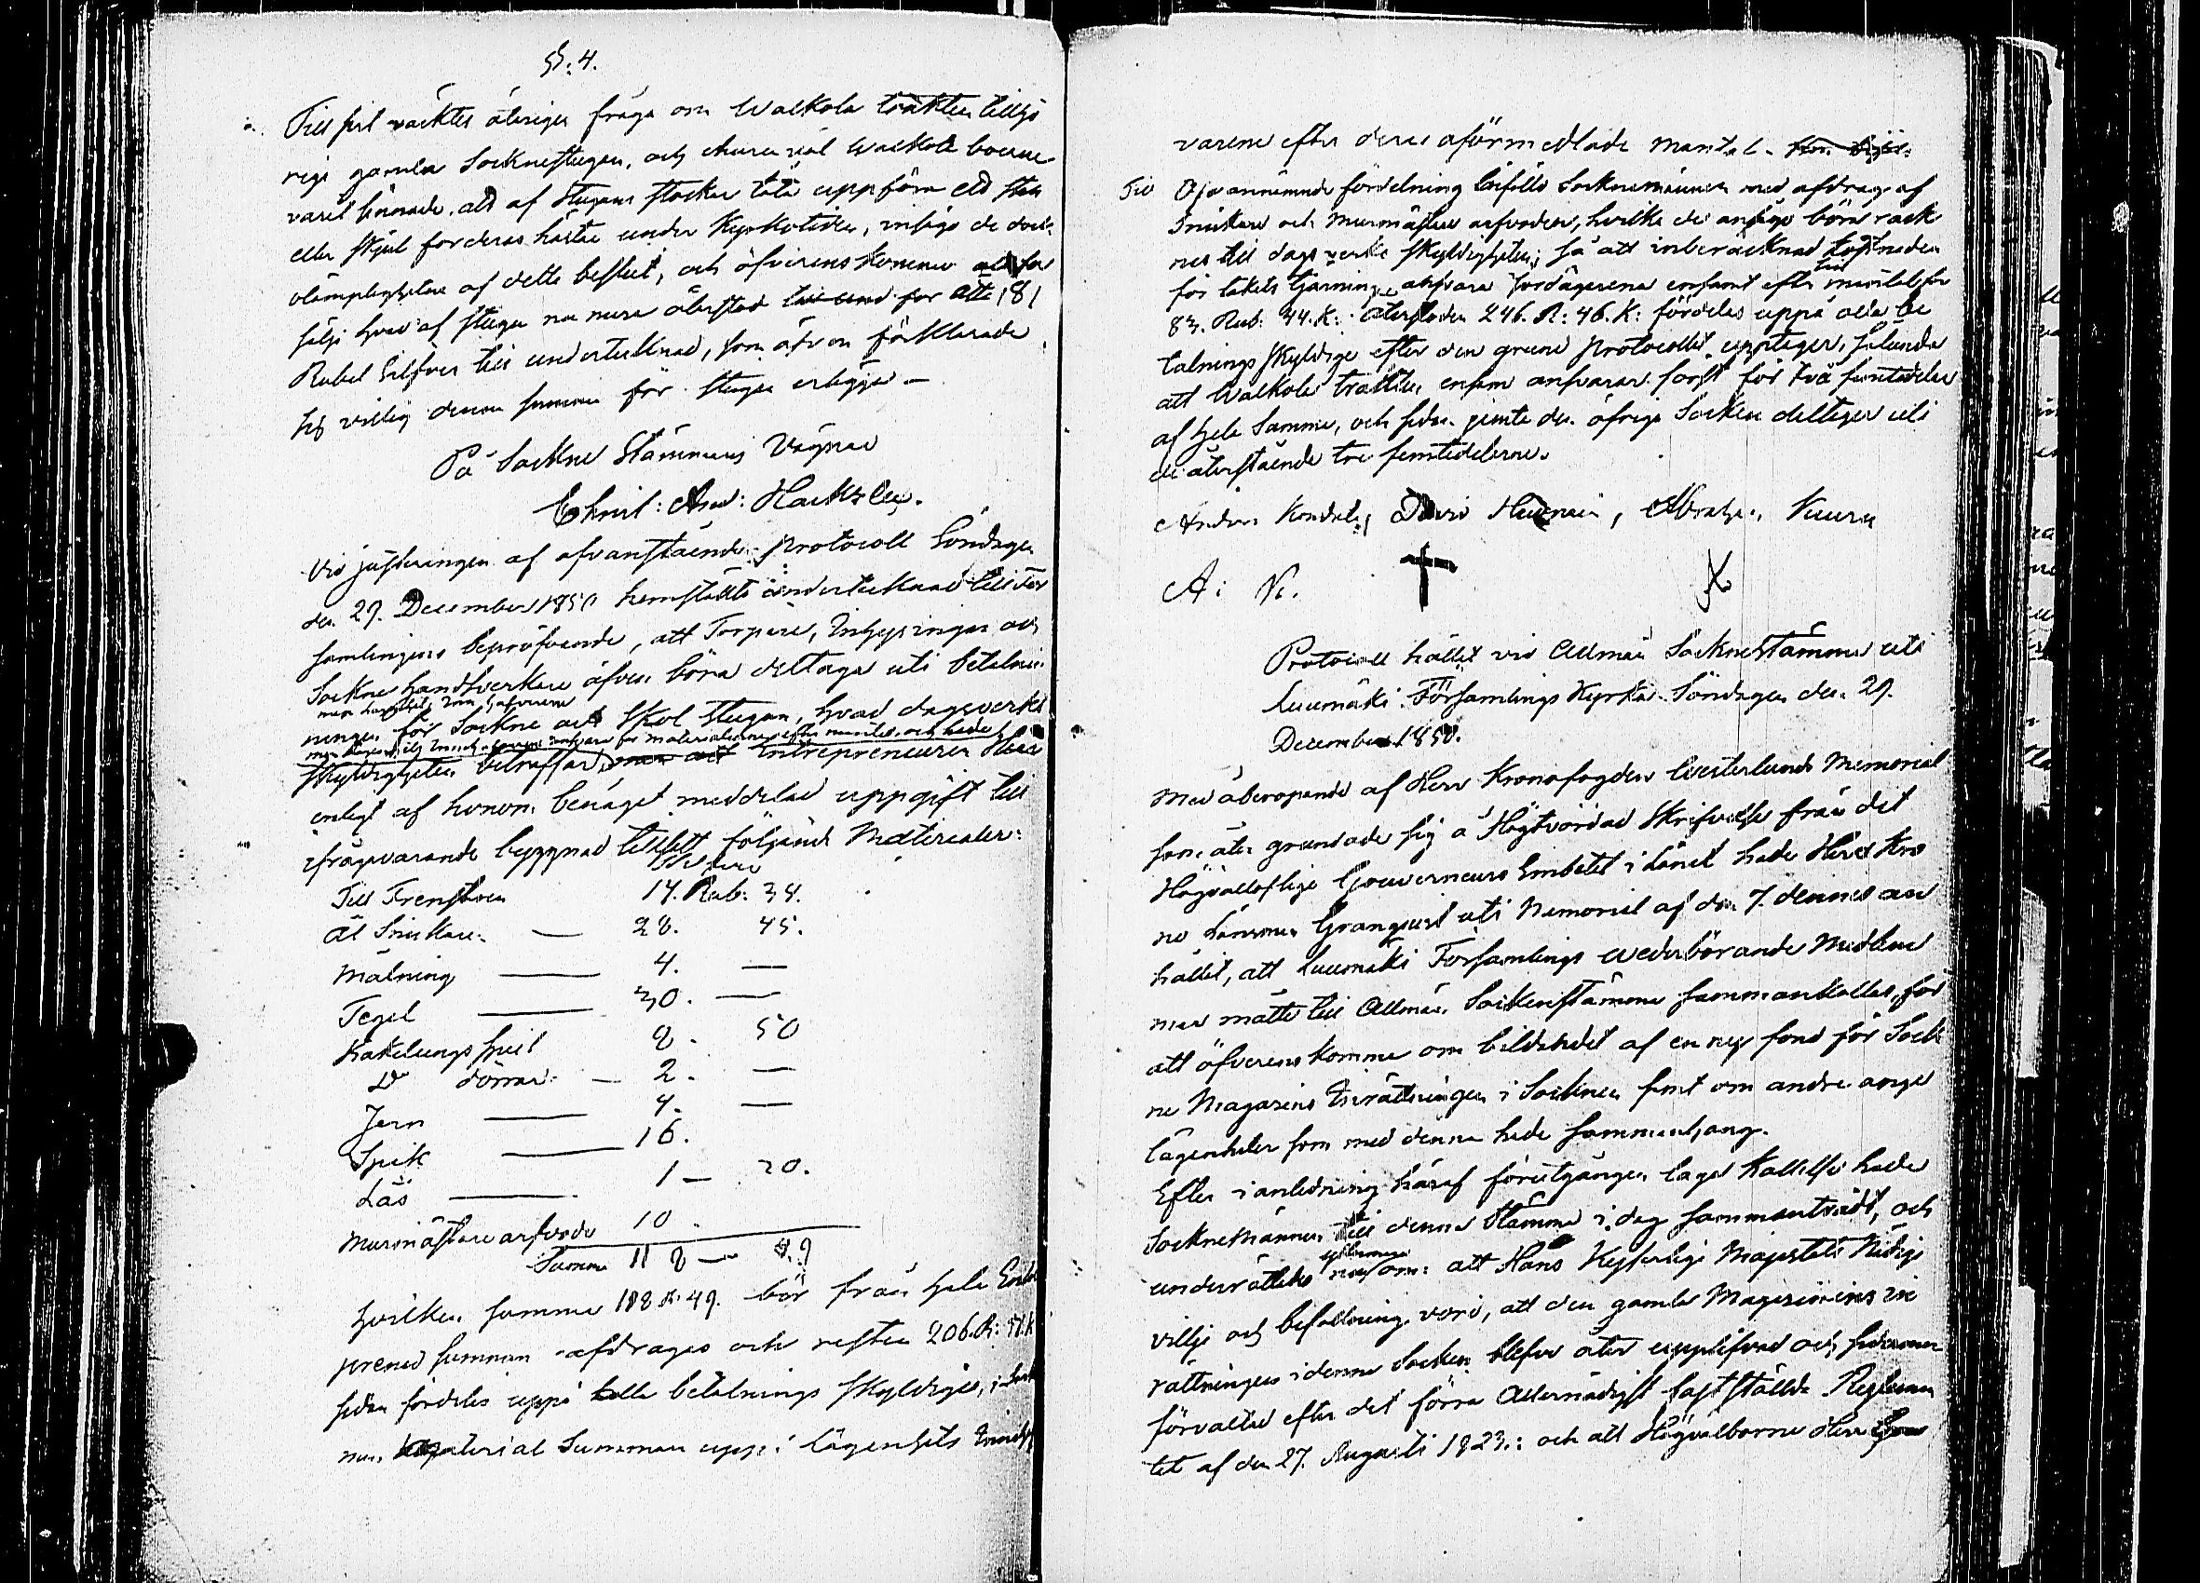 §: 4.
Till sist väcktes återigen fråga om Walkola trakten tillhö
rige gamla Socknestugan, och churu väl Walkola boerne
varit sinnade, att af Stugans stockar låta uppföra ett stall
eller skjul för deras hästar under Kyrkotiden, insågo de dock
olämpligheten af detta beslut, och öfverenskommo att för
sälja hvad af stugan nu mera återstod för åtta /8/
Rubel Silfver till undertecknad, som äfven förklarade
sig villig denna summa för stugan erlägga.
På Sockne Stämmans Vägnar
And:
Vid justeringen af ofvanstående Protocoll Söndagen
den 29. December 1850 hemställte undertecknad till För
samlingens bepröfvande, att Torpare, Inhysingar och
Sockne handtverkare äfven böra deltaga uti betalnin
ningen för Sockne och Skol Stugan, hvad dagsverks
skyldigheten beträffar Entrepreneuren
enligt af honom benäget meddelad uppgift till
ifrågavarande byggnad tillsatt följande Materialer:
Till Fenstren 14. Rub: 34.
åt Snickare — 28. 45.
Målning — 4. —
Tegel — 30. —
Kakelungs spjel 8. 50
D° dörrar — 2. —
Jern — 4. —
Spik — 16.
Lås — 1 — 20.
Murmästare arfvode 10.
Summa 118 — 49
hvilken summa 118 R. 49. bör från hela Entre
prenad summan afdragas och resten 206. R:
sedan fördelas uppå alla betalnings skyldige, i
material Summan uppå lägenhets
varene efter deras oförmedlade mantal.
Till Ofvannämnde fördelning biföllo Socknemännen med afdrag af
Snickare och Murmästare arfvoden, hvilka de ansågo böra räck
nas till dagsverks skyldigheten; så att inberäcknad kostnaden
för takets tjärning, ansvara Jordägarena ensamt efter mantal för
83. Rub: 44. K: Återstoden 246. R: 46. K: fördelas uppå alla be
talnings skyldige efter den grund Protocollet upptager, sålunda
att Walkola trakten ensam ansvarar först för två femtedelar
af hela Summan, och sedan jemte den öfriga Socken deltager uti
de återstående tre femtedelarne.
Anders David Abraham Kuura
A: K.
Protocoll hållet vid Allmän Sockne Stämma uti
Luumäki Församlings Kyrka Söndagen den 29.
December 1850.
Med åberopande af Herr Kronofogden Westerlunds Memorial
som åter grundade sig å Högtvördad Skrifvelse från det
Högvällofliga Gouverneurs Embetet i Länet hade Herr Kro
no Länsman Granqvist uti Memorial af den 7. dennes an
hållit, att Luumäki Församlings wederbörande Medlem
mar måtte till Allmän Sockenstämma sammankallas, för
att öfverenskomma om bildandet af en ny fond för Sock
ne Magasins Inrättningen i Socknen samt om andra ange
lägenheter som med denna hade sammanhang.
Efter i anledning häraf förutgången laga Kallelse hade
Socknemännen till denna Stämma i dag sammanträdt, och
underrättades om: att Hans Kejserliga Majestäts Nådiga
vilja och befallning vore, att den gamla Magasins in
rättningen i denna Socken blefve åter upplifvad och
förvaltad efter det förra Allernådigst fastställda Reglemen
tet af den 27. Augusti 1823.: och att Högvälborne Herr